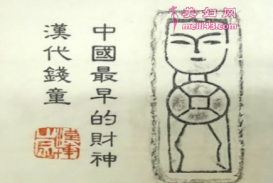 中國最早的財神
漢代錢童
美妇网
meli43.com